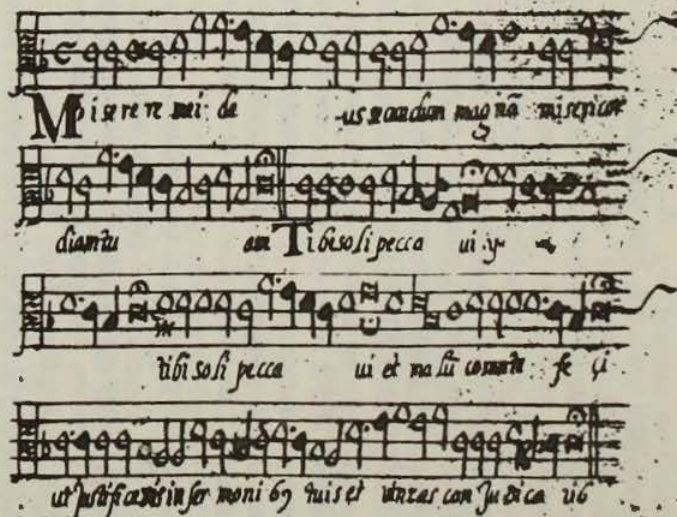 Miserere mei de us secundum magnã misericor
diam tu am Tibi soli pecca ui y
tibi soli pecca ui et malũ coram te fe çi
ut justificeris in ser moni b9 tuis et uincas con judica